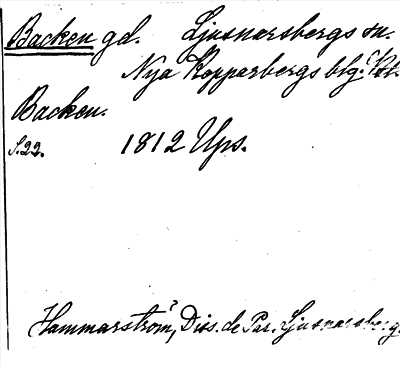 Backen gd. Ljusnarsbergs sn.
Nya Kopparbergs blg.
Backen.
S. 22. 1812 Ups.
Hammarström, Diss. de Par. Ljusnarsberg.